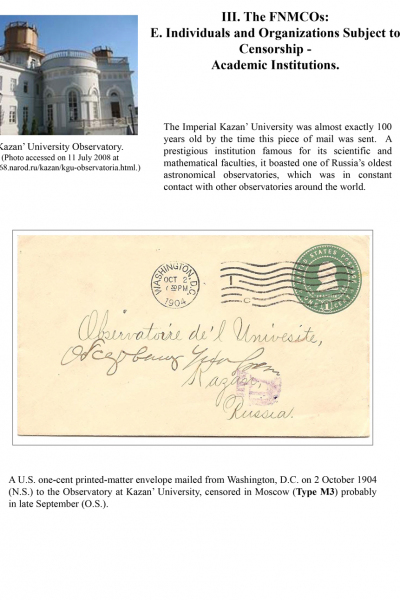 III. The FNMCOs:
E. Individuals and Organizations Subject to
Censorship -
Academic Institutions.
Kazan’ University Observatory.
(Photo accessed on 11 July 2008 at
68.narod.ru/kazan/kgu-observatoria.html.)
The Imperial Kazan’ University was almost exactly 100
years old by the time this piece of mail was sent. A
prestigious institution famous for its scientific and
mathematical faculties, it boasted one of Russia’s oldest
astronomical observatories, which was in constant
contact with other observatories around the world.
WASHINGTON, D.C.
OCT 2
PM
1904
STATES POSTAGE
Observatoire de'l Univesite,
Kazan,
Russia.
A U.S. one-cent printed-matter envelope mailed from Washington, D.C. on 2 October 1904
(N.S.) to the Observatory at Kazan’ University, censored in Moscow (Type M3) probably
in late September (O.S.).